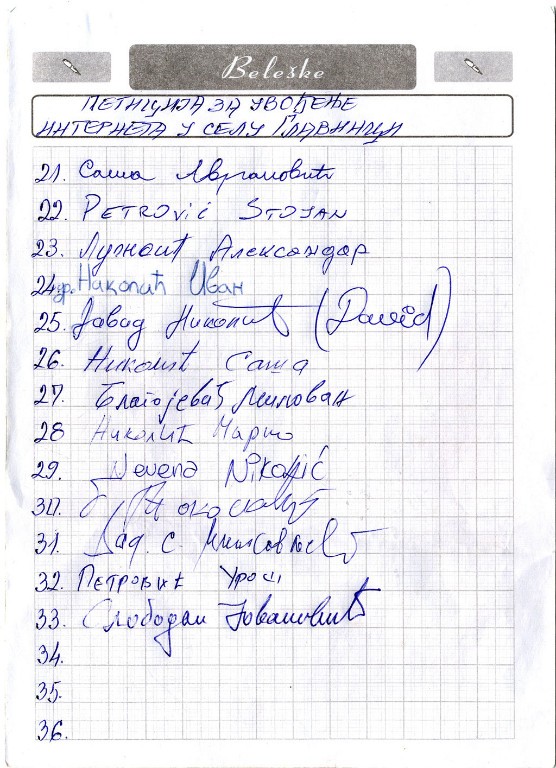 Beleške
ПЕТИЦИЈА ЗА УВОЂЕЊЕ
ИНТЕРНЕТА У СЕЛУ ГЛАВИНЦИ
21. Саша Аврамовић
22. PETROVIĆ STOJAN
23. Александар
24. др. Николић Иван
25. Давид Николић (David)
26. Николић Саша
27. Благојевић Милован
28 Николић Марко
29. Nevena Nikolić
30.
31. С.
32. ПЕТРОВИЋ УРОШ
33. Слободан Јовановић
34.
35.
36.